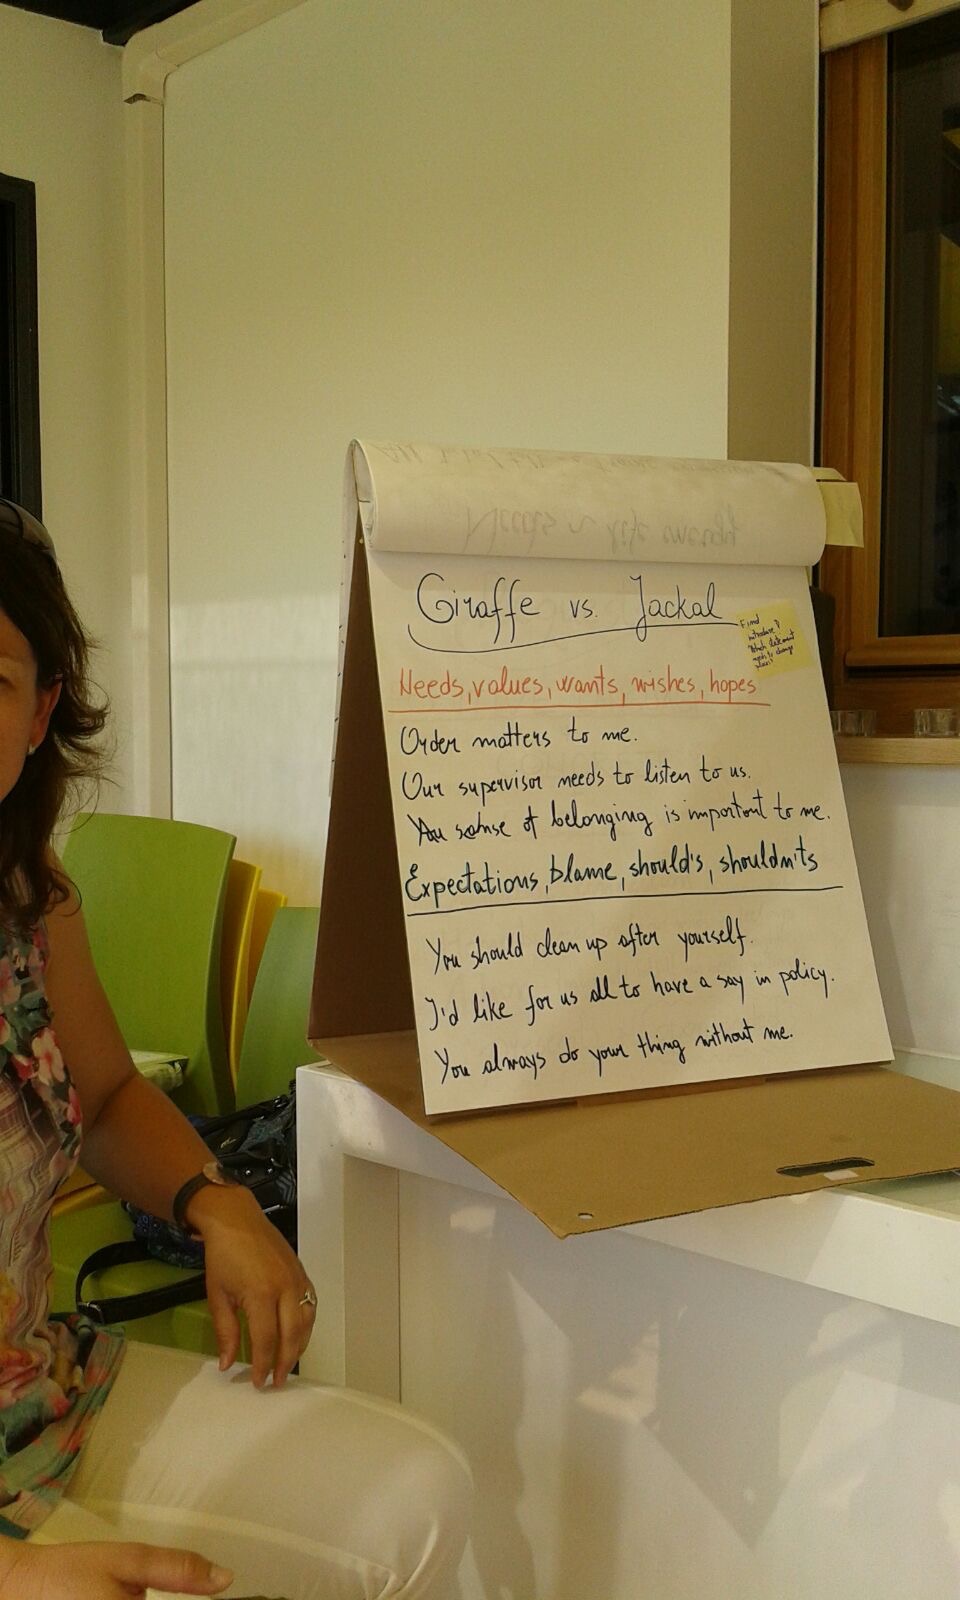 Giraffe vs. Jackal
Find
introduce?
Which statement
needs to change
places?
Needs, values, wants, wishes, hopes
Order matters to me.
Our supervisor needs to listen to us.
sense of belonging is important to me.
Expectations, blame, should's, shouldn'ts
You should clean up after yourself.
I'd like for us all to have a say in policy.
You always do your thing without me.